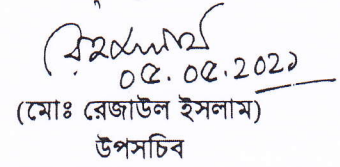 ০৫.০৫.2০২১
(মোঃ রেজাউল ইসলাম)
উপসচিব